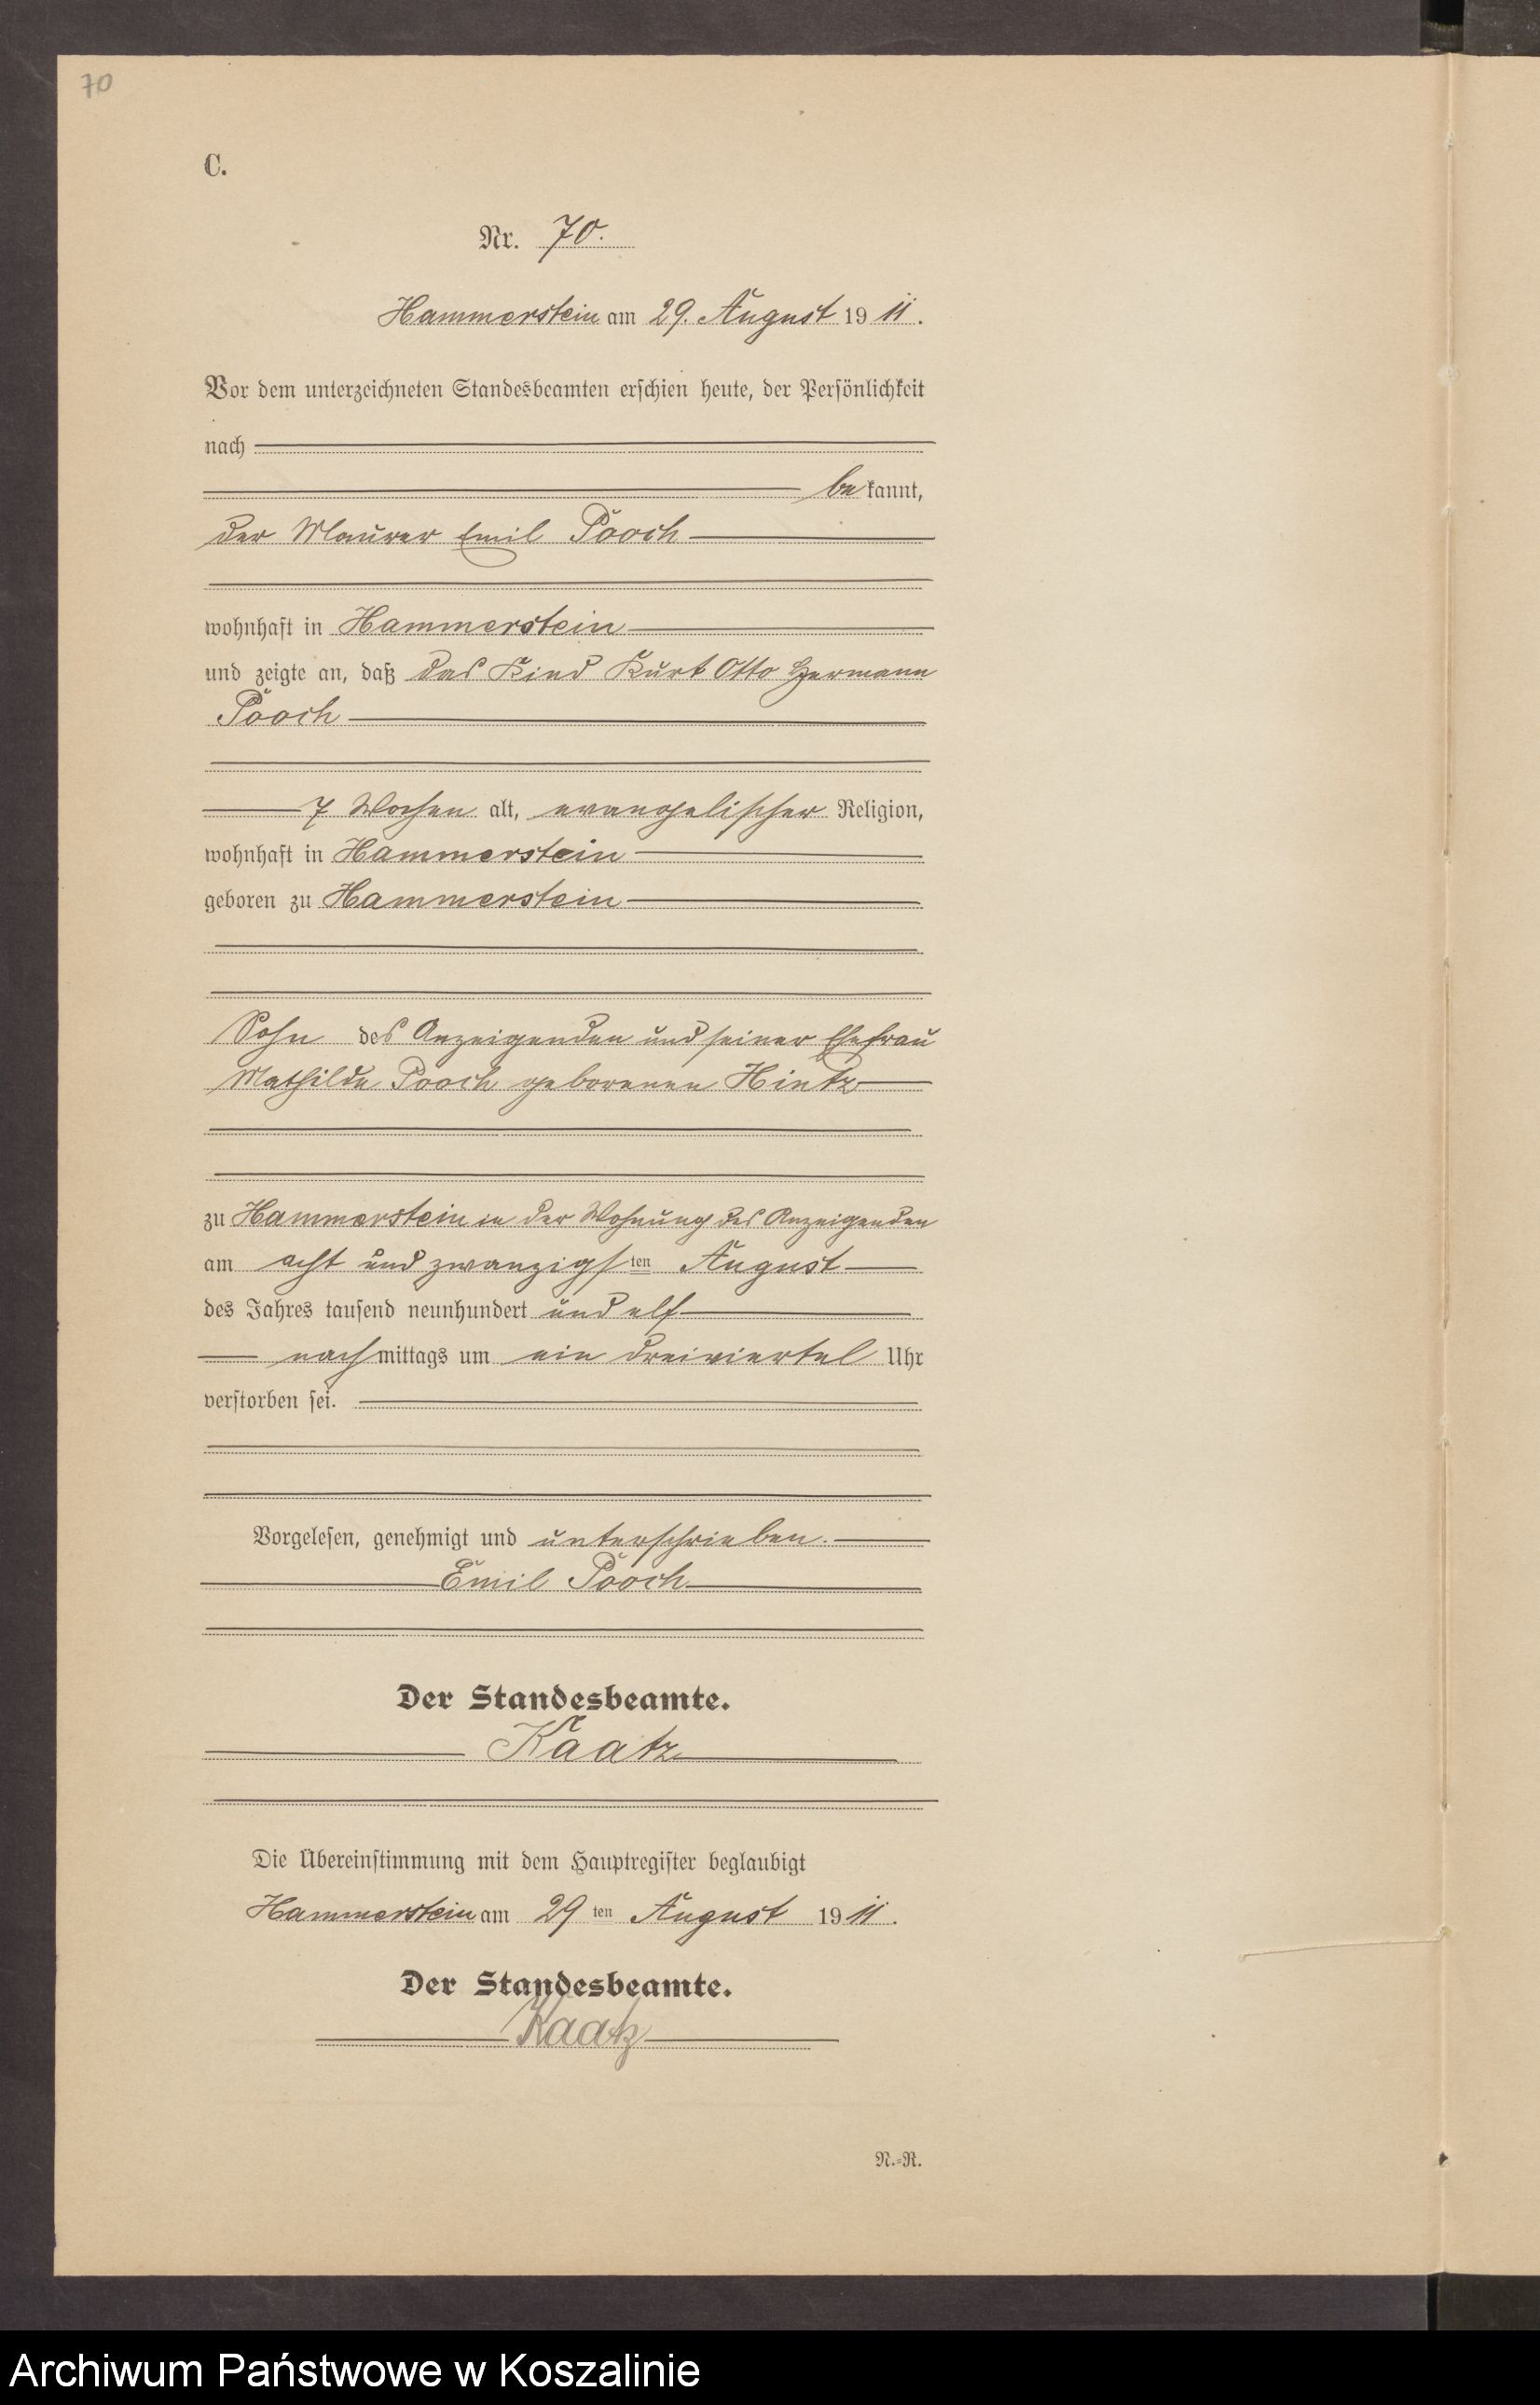 70
C.
Nr. 70.
Hammerstein am 29. August 1911.
Vor dem unterzeichneten Standesbeamten erschien heute, der Persönlichkeit
nach
bekannt,
der Maurer Emil Pooch
wohnhaft in Hammerstein
und zeigte an, daß das Kind Kurt Otto Hermann
Pooch
7 Wochen alt, evangelischer Religion,
wohnhaft in Hammerstein
geboren zu Hammerstein
Sohn des Anzeigenden und seiner Ehefrau
Mathilde Pooch geborenen Hintz
zu Hammerstein in der Wohnung des Anzeigenden
am acht und zwanzigsten August
des Jahres tausend neunhundert und elf
nachmittags um ein dreiviertel Uhr
verstorben sei.
Vorgelesen, genehmigt und unterschrieben.
Emil Pooch
Der Standesbeamte.
Kaatz
Die Übereinstimmung mit dem Hauptregister beglaubigt
Hammerstein am 29ten August 1911.
Der Standesbeamte.
Kaatz
N.=R.
Archiwum Państwowe w Koszalinie